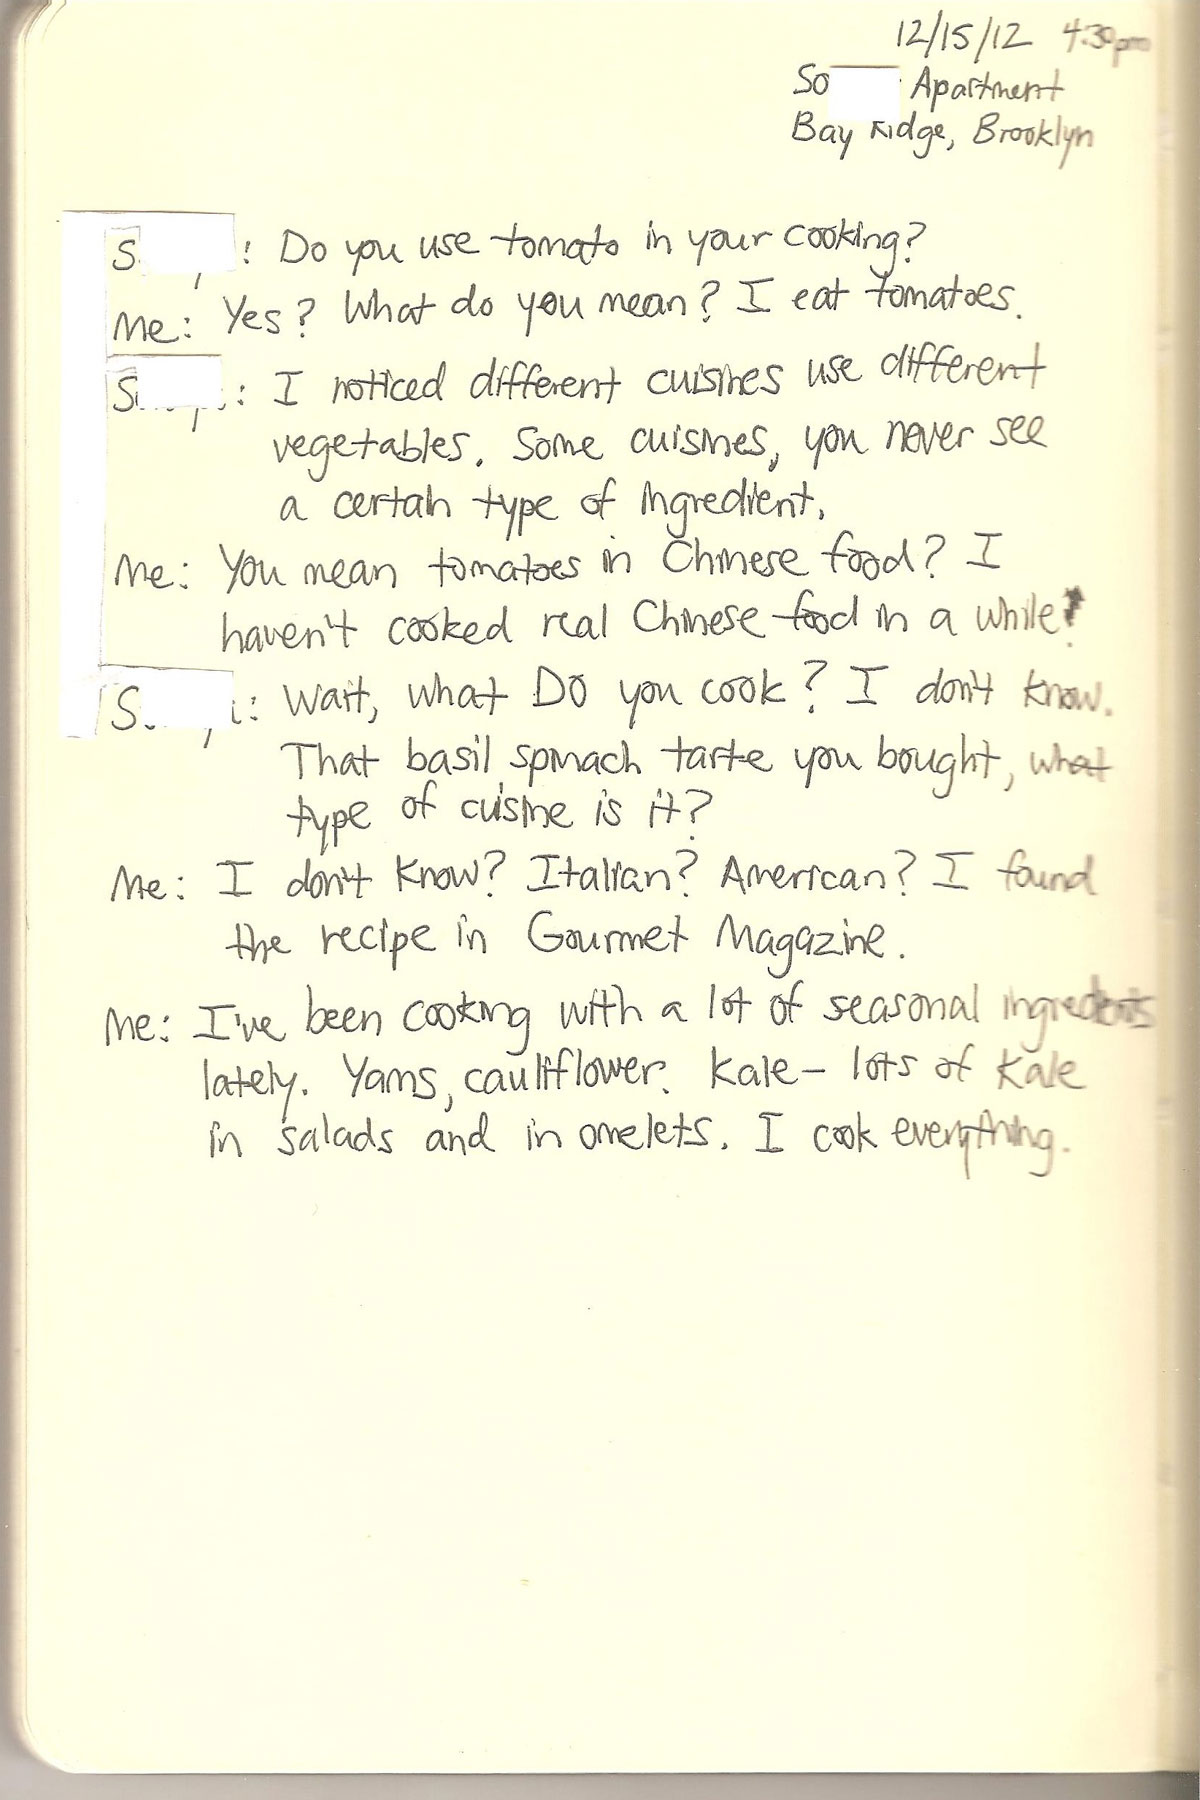 12/15/12 4:30pm
So Apartment
Bay Ridge, Brooklyn
S : Do you use tomato in your cooking?
Me: Yes? What do you mean? I eat tomatoes.
S : I noticed different cuisines use different
vegetables. Some cuisines, you never see
a certain type of ingredient.
Me: You mean tomatoes in Chinese food? I
haven't cooked real Chinese food in a while?
S : Wait, what DO you cook? I don't know.
That basil spinach tarte you bought, what
type of cuisine is it?
Me: I don't know? Italian? American? I found
the recipe in Gourmet Magazine.
Me: I've been cooking with a lot of seasonal ingredients
lately. Yams, cauliflower. Kale – lots of Kale
in salads and in omelets. I cook everything.